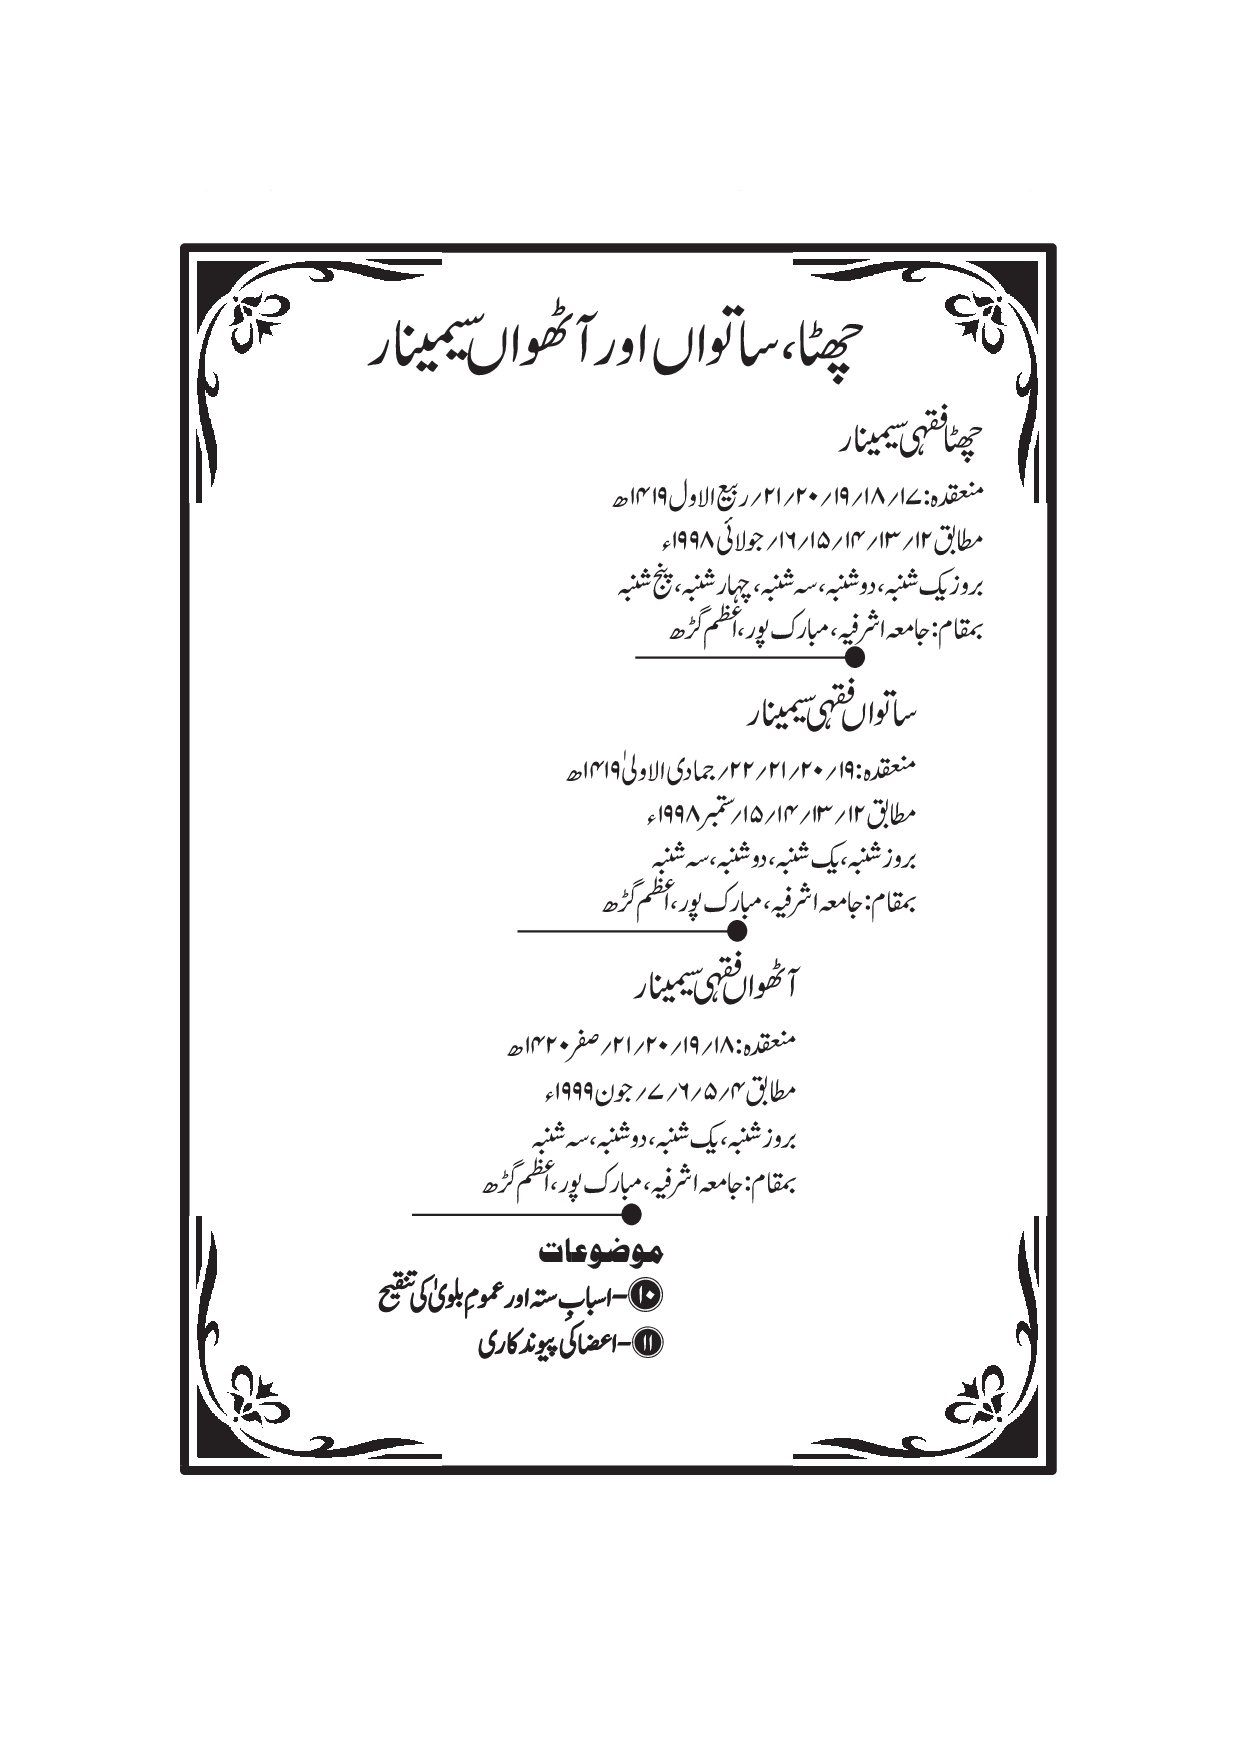 چھٹا، ساتواں اور آٹھواں سیمینار
چھٹا فقہی سیمینار
منعقدہ: ۱۷/ ۱۸/ ۱۹/ ۲۰/ ۲۱/ ربیع الاول ۱۴۱۹ھ
مطابق ۱۲/ ۱۳/ ۱۴/ ۱۵/ ۱۶/ جولائی ۱۹۹۸ء
بروز یک شنبہ، دو شنبہ، سہ شنبہ، چہار شنبہ، پنج شنبہ
بمقام: جامعہ اشرفیہ، مبارک پور، اعظم گڑھ
ساتواں فقہی سیمینار
منعقدہ: ۱۹/ ۲۰/ ۲۱/ ۲۲/ جمادی الاولیٰ ۱۴۱۹ھ
مطابق ۱۲/ ۱۳/ ۱۴/ ۱۵/ ستمبر ۱۹۹۸ء
بروز شنبہ، یک شنبہ، دو شنبہ، سہ شنبہ
بمقام: جامعہ اشرفیہ، مبارک پور، اعظم گڑھ
آٹھواں فقہی سیمینار
منعقدہ: ۱۸/ ۱۹/ ۲۰/ ۲۱/ صفر ۱۴۲۰ھ
مطابق ۴/ ۵/ ۶/ ۷/ جون ۱۹۹۹ء
بروز شنبہ، یک شنبہ، دو شنبہ، سہ شنبہ
بمقام: جامعہ اشرفیہ، مبارک پور، اعظم گڑھ
موضوعات
۱۰-اسبابِ ستہ اور عمومِ بلویٰ کی تنقیح
۱۱-اعضا کی پیوند کاری